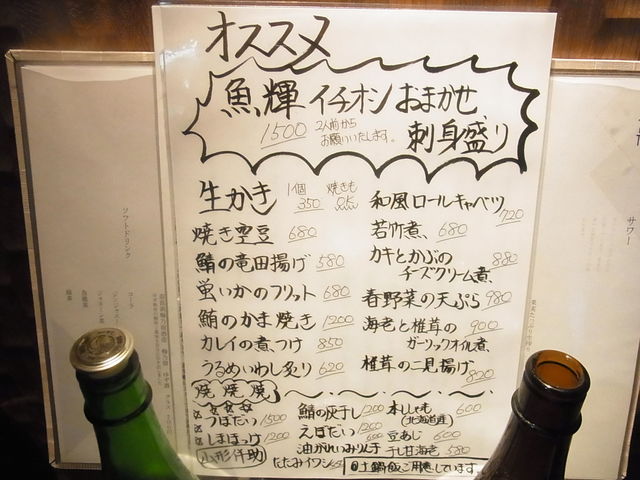 オススメ
魚輝 イチオシ おまかせ
刺身盛り
1500 2人前から
お願いいたします。
生かき 1個 350 焼きも
焼き空豆 680
鯖の竜田揚げ 580
蛍いかのフリット 680
鮪のかま焼き 1200
カレイの煮つけ 850
うるめいわし炙り 620
和風ロールキャベツ 720
若竹煮、 680
カキとかぶの 880
チーズクリーム煮、
春野菜の天ぷら 980
海老と椎茸の 900
ガーリックオイル煮、
椎茸の二見揚げ 800
焼 焼 焼
つぼだい 1500
しまほっけ 1200
鯖の灰干し 1200
えぼだい 1200
たたみイワシ
本ししゃも 600
(北海道産)
豆あじ 600
干し甘海老 580
ソフトドリンク
コーラ
ジンジャエール
烏龍茶
緑茶
サワー